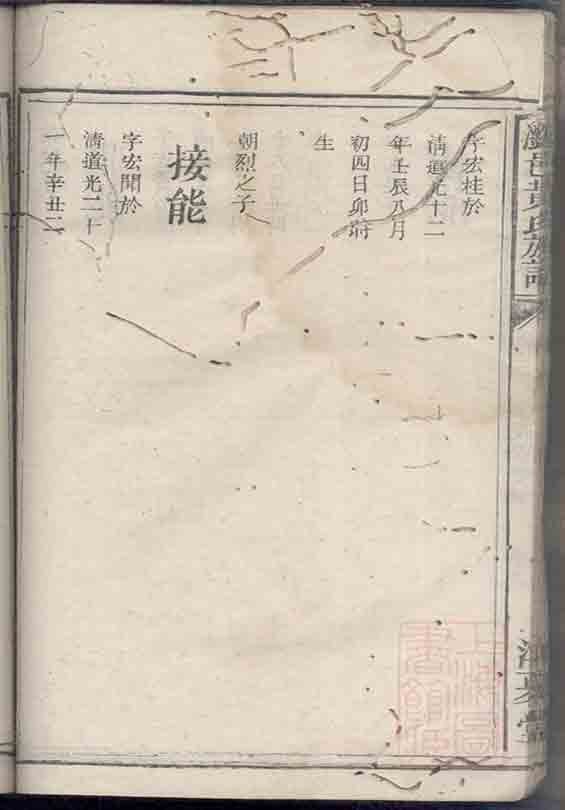 字宏桂於
清道光十二
年壬辰八月
初四日卯時
生
朝烈之子
接能
字宏開於
清道光二十
一年辛丑二
邑黃氏族譜
江夏堂
上海圖書館藏